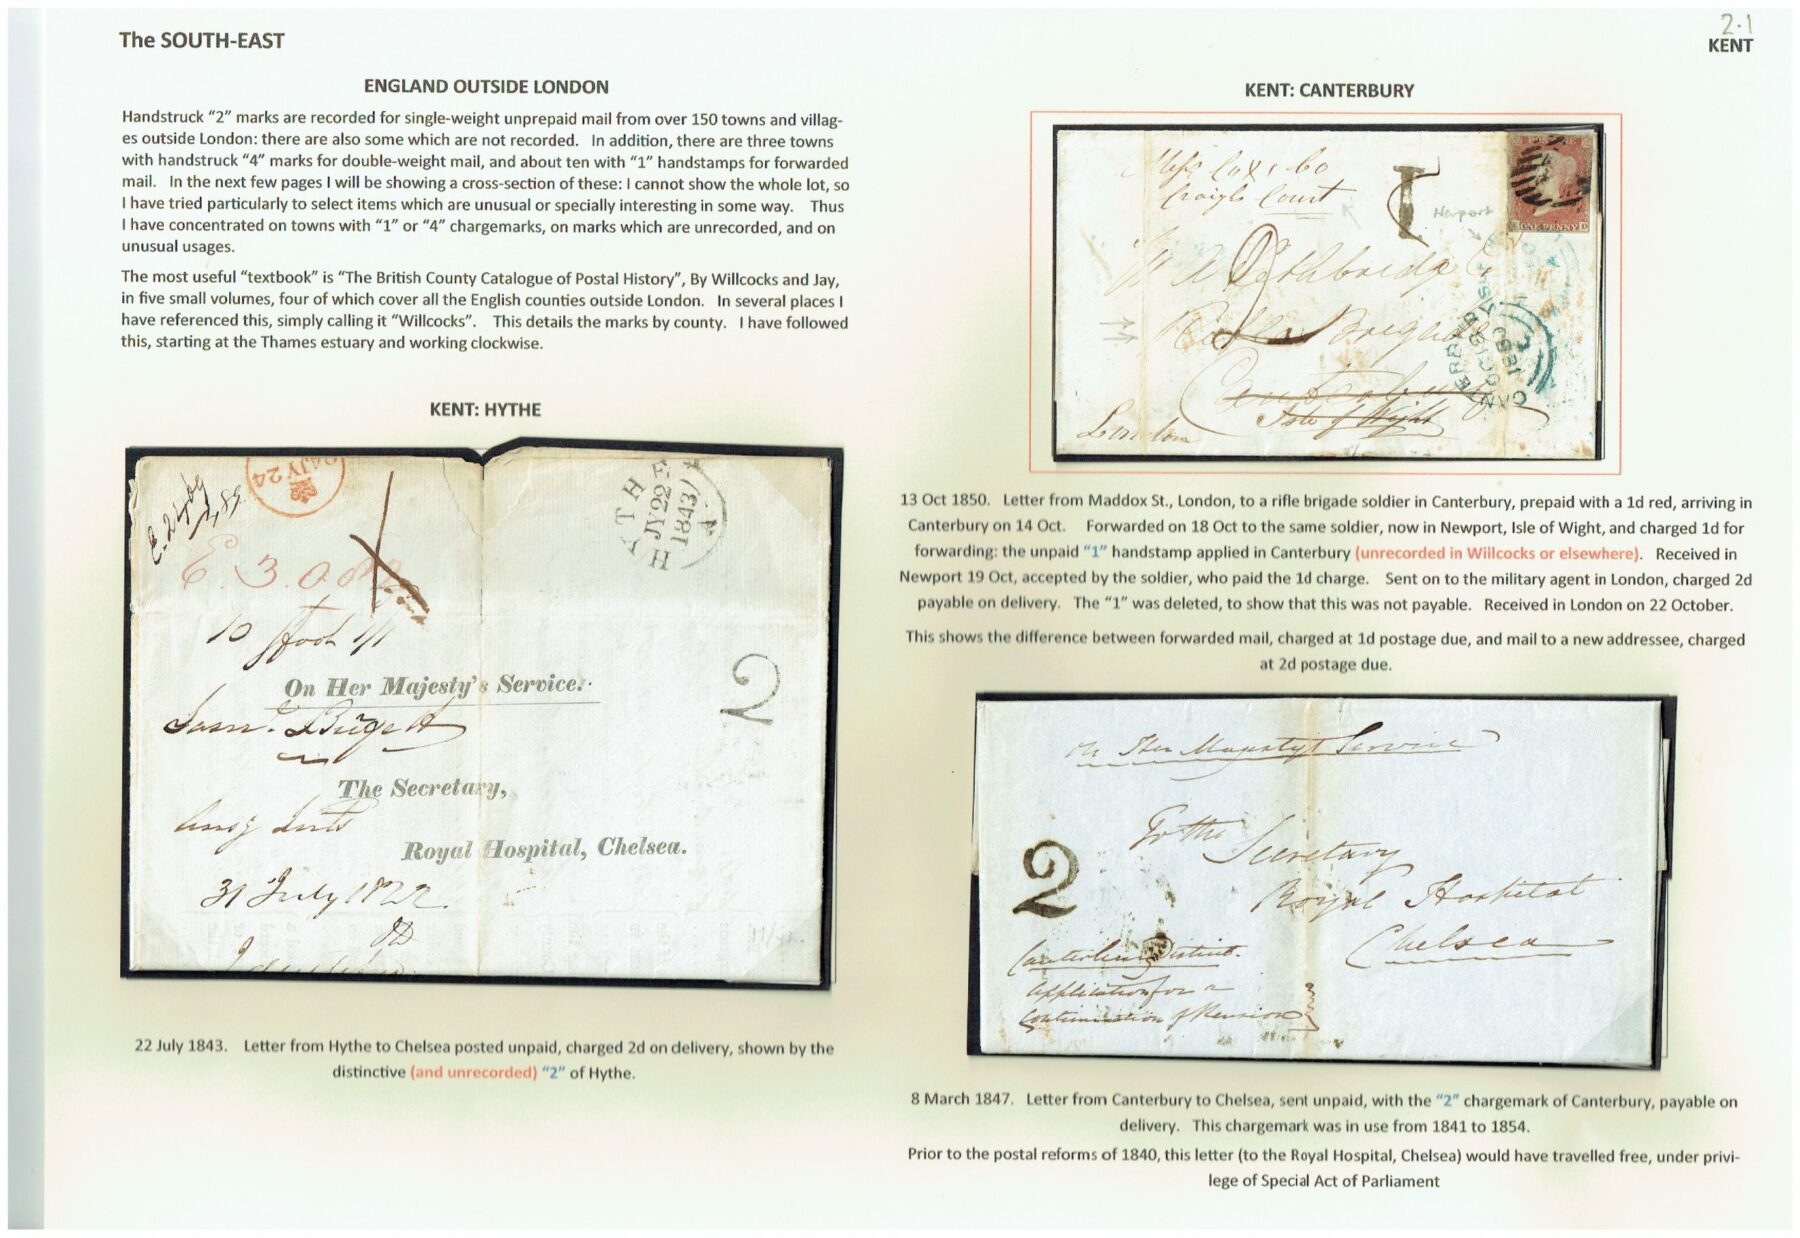 2.1
The SOUTH-EAST
KENT
ENGLAND OUTSIDE LONDON
Handstruck “2” marks are recorded for single-weight unprepaid mail from over 150 towns and villag-
es outside London: there are also some which are not recorded. In addition, there are three towns
with handstruck “4” marks for double-weight mail, and about ten with “1” handstamps for forwarded
mail. In the next few pages I will be showing a cross-section of these: I cannot show the whole lot, so
I have tried particularly to select items which are unusual or specially interesting in some way. Thus
I have concentrated on towns with “1” or “4” chargemarks, on marks which are unrecorded, and on
unusual usages.
The most useful “textbook” is “The British County Catalogue of Postal History”, By Willcocks and Jay,
in five small volumes, four of which cover all the English counties outside London. In several places I
have referenced this, simply calling it “Willcocks”. This details the marks by county. I have followed
this, starting at the Thames estuary and working clockwise.
KENT: HYTHE
JY 24
HYTHE
JY 22
1843
A
10
On Her Majesty's Service.
2
The Secretary,
Royal Hospital, Chelsea.
31 July 1822
22 July 1843. Letter from Hythe to Chelsea posted unpaid, charged 2d on delivery, shown by the
distinctive (and unrecorded) “2” of Hythe.
KENT: CANTERBURY
Craigs Court
1
Newport
ONE PENNY
Rifle Brigade
Canterbury
Isle of Wight
London
CANTERBURY
OC 18
1850
13 Oct 1850. Letter from Maddox St., London, to a rifle brigade soldier in Canterbury, prepaid with a 1d red, arriving in
Canterbury on 14 Oct. Forwarded on 18 Oct to the same soldier, now in Newport, Isle of Wight, and charged 1d for
forwarding: the unpaid “1” handstamp applied in Canterbury (unrecorded in Willcocks or elsewhere). Received in
Newport 19 Oct, accepted by the soldier, who paid the 1d charge. Sent on to the military agent in London, charged 2d
payable on delivery. The “1” was deleted, to show that this was not payable. Received in London on 22 October.
This shows the difference between forwarded mail, charged at 1d postage due, and mail to a new addressee, charged
at 2d postage due.
On Her Majesty's Service
To the
Secretary
Royal Hospital
Chelsea
2
Canterbury District.
Application for a
Continuation of Pension
8 March 1847. Letter from Canterbury to Chelsea, sent unpaid, with the “2” chargemark of Canterbury, payable on
delivery. This chargemark was in use from 1841 to 1854.
Prior to the postal reforms of 1840, this letter (to the Royal Hospital, Chelsea) would have travelled free, under privi-
lege of Special Act of Parliament